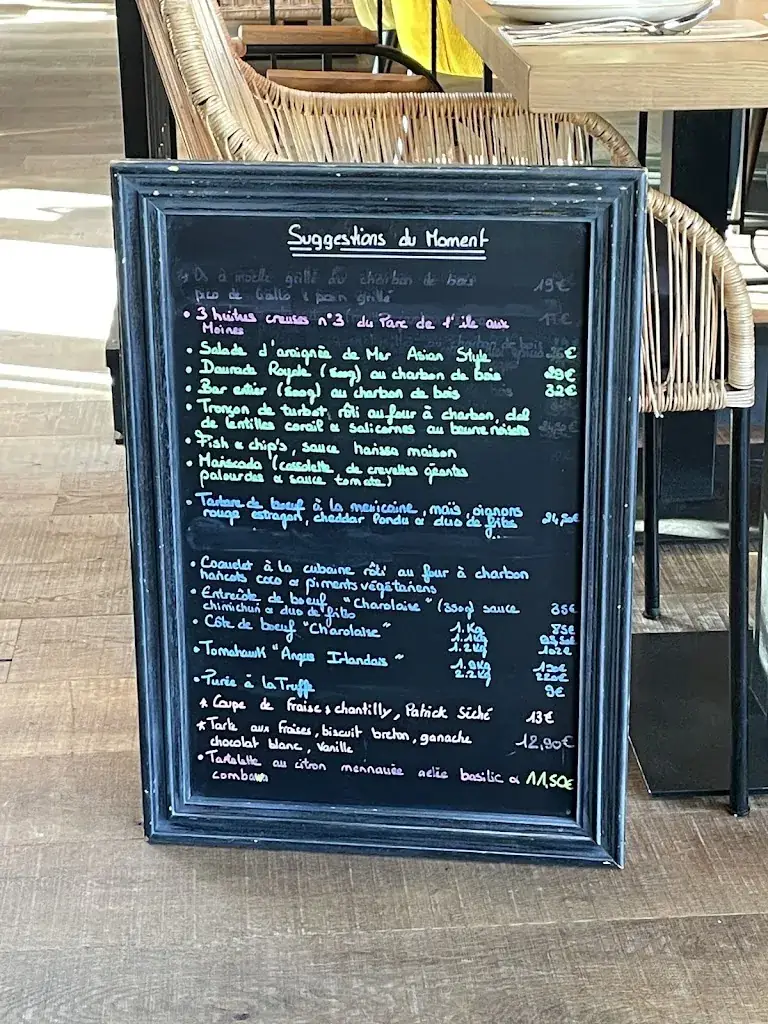 Suggestions du Moment
Os à moelle grillé au charbon de bois 19€
pico de Gallo & pain grillé
• 3 huitres creuses n°3 du Parc de l'ile aux
Moines
• Salade d'araignée de Mer Asian Style €
• Daurade Royale (500g) au charbon de bois 29€
• Bar entier (500g) au charbon de bois 32€
• Tronçon de turbot rôti au four à charbon, dal
de lentilles corail & salicornes au beurre noisette
• Fish & chip's, sauce harissa maison
• Mariscada (cassolette de crevettes géantes
palourdes & sauce tomate)
• Tartare de boeuf à la mexicaine, maïs, oignons
rouge estragon, cheddar fondu & duo de frites 24,50€
• Coquelet à la cubaine rôti au four à charbon
haricots coco & piments végétariens
• Entrecôte de boeuf "Charolaise" (350g) sauce 35€
chimichuri & duo de frites
• Côte de boeuf "Charolaise" 1.Kg 85€
1.1Kg
1.2Kg 102€
• Tomahawk "Angus Irlandais"
2.2Kg 220€
• Purée à la Truffe 9€
* Coupe de Fraise & chantilly, Patrick Séché 13€
* Tarte aux Fraises, biscuit breton, ganache 12,90€
chocolat blanc, vanille
• Tartelette au citron gelée basilic & 11,50€
combawa